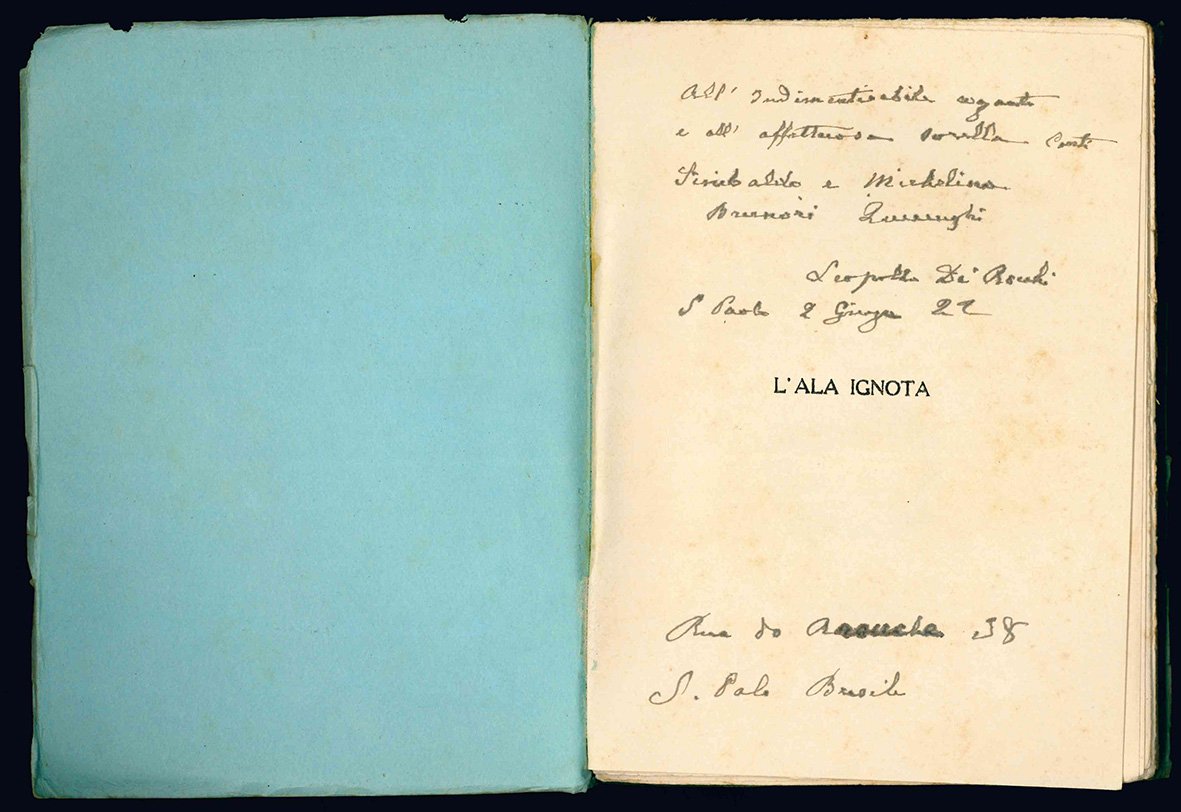 All' Indimenticabile cognato
e all' affettuosa sorella Conti
Sinibaldo e Michelina
Brunori
Leopoldo De Rocchi
S Paolo 2 Giugno 22
L'ALA IGNOTA
Rua do Arouche 38
S. Palo Brasile